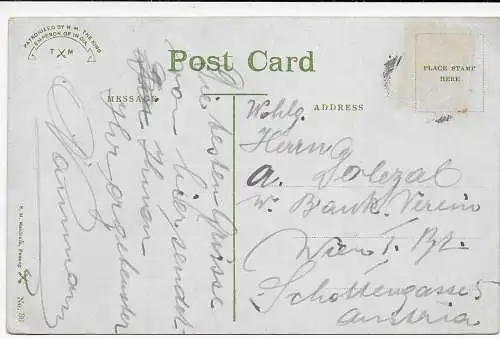 PATRONISED BY H.M. THE KING
EMPEROR OF INDIA
T M
Post Card
PLACE STAMP
HERE
MESSAGE
ADDRESS
Die besten Grüsse
von hier sendet
Ihr Ihnen
Wohlg.
Herrn
A. Dolezal
W. Bank. Verein
Wien I. Bz.
Schottengasse 5
Austria
No. 701